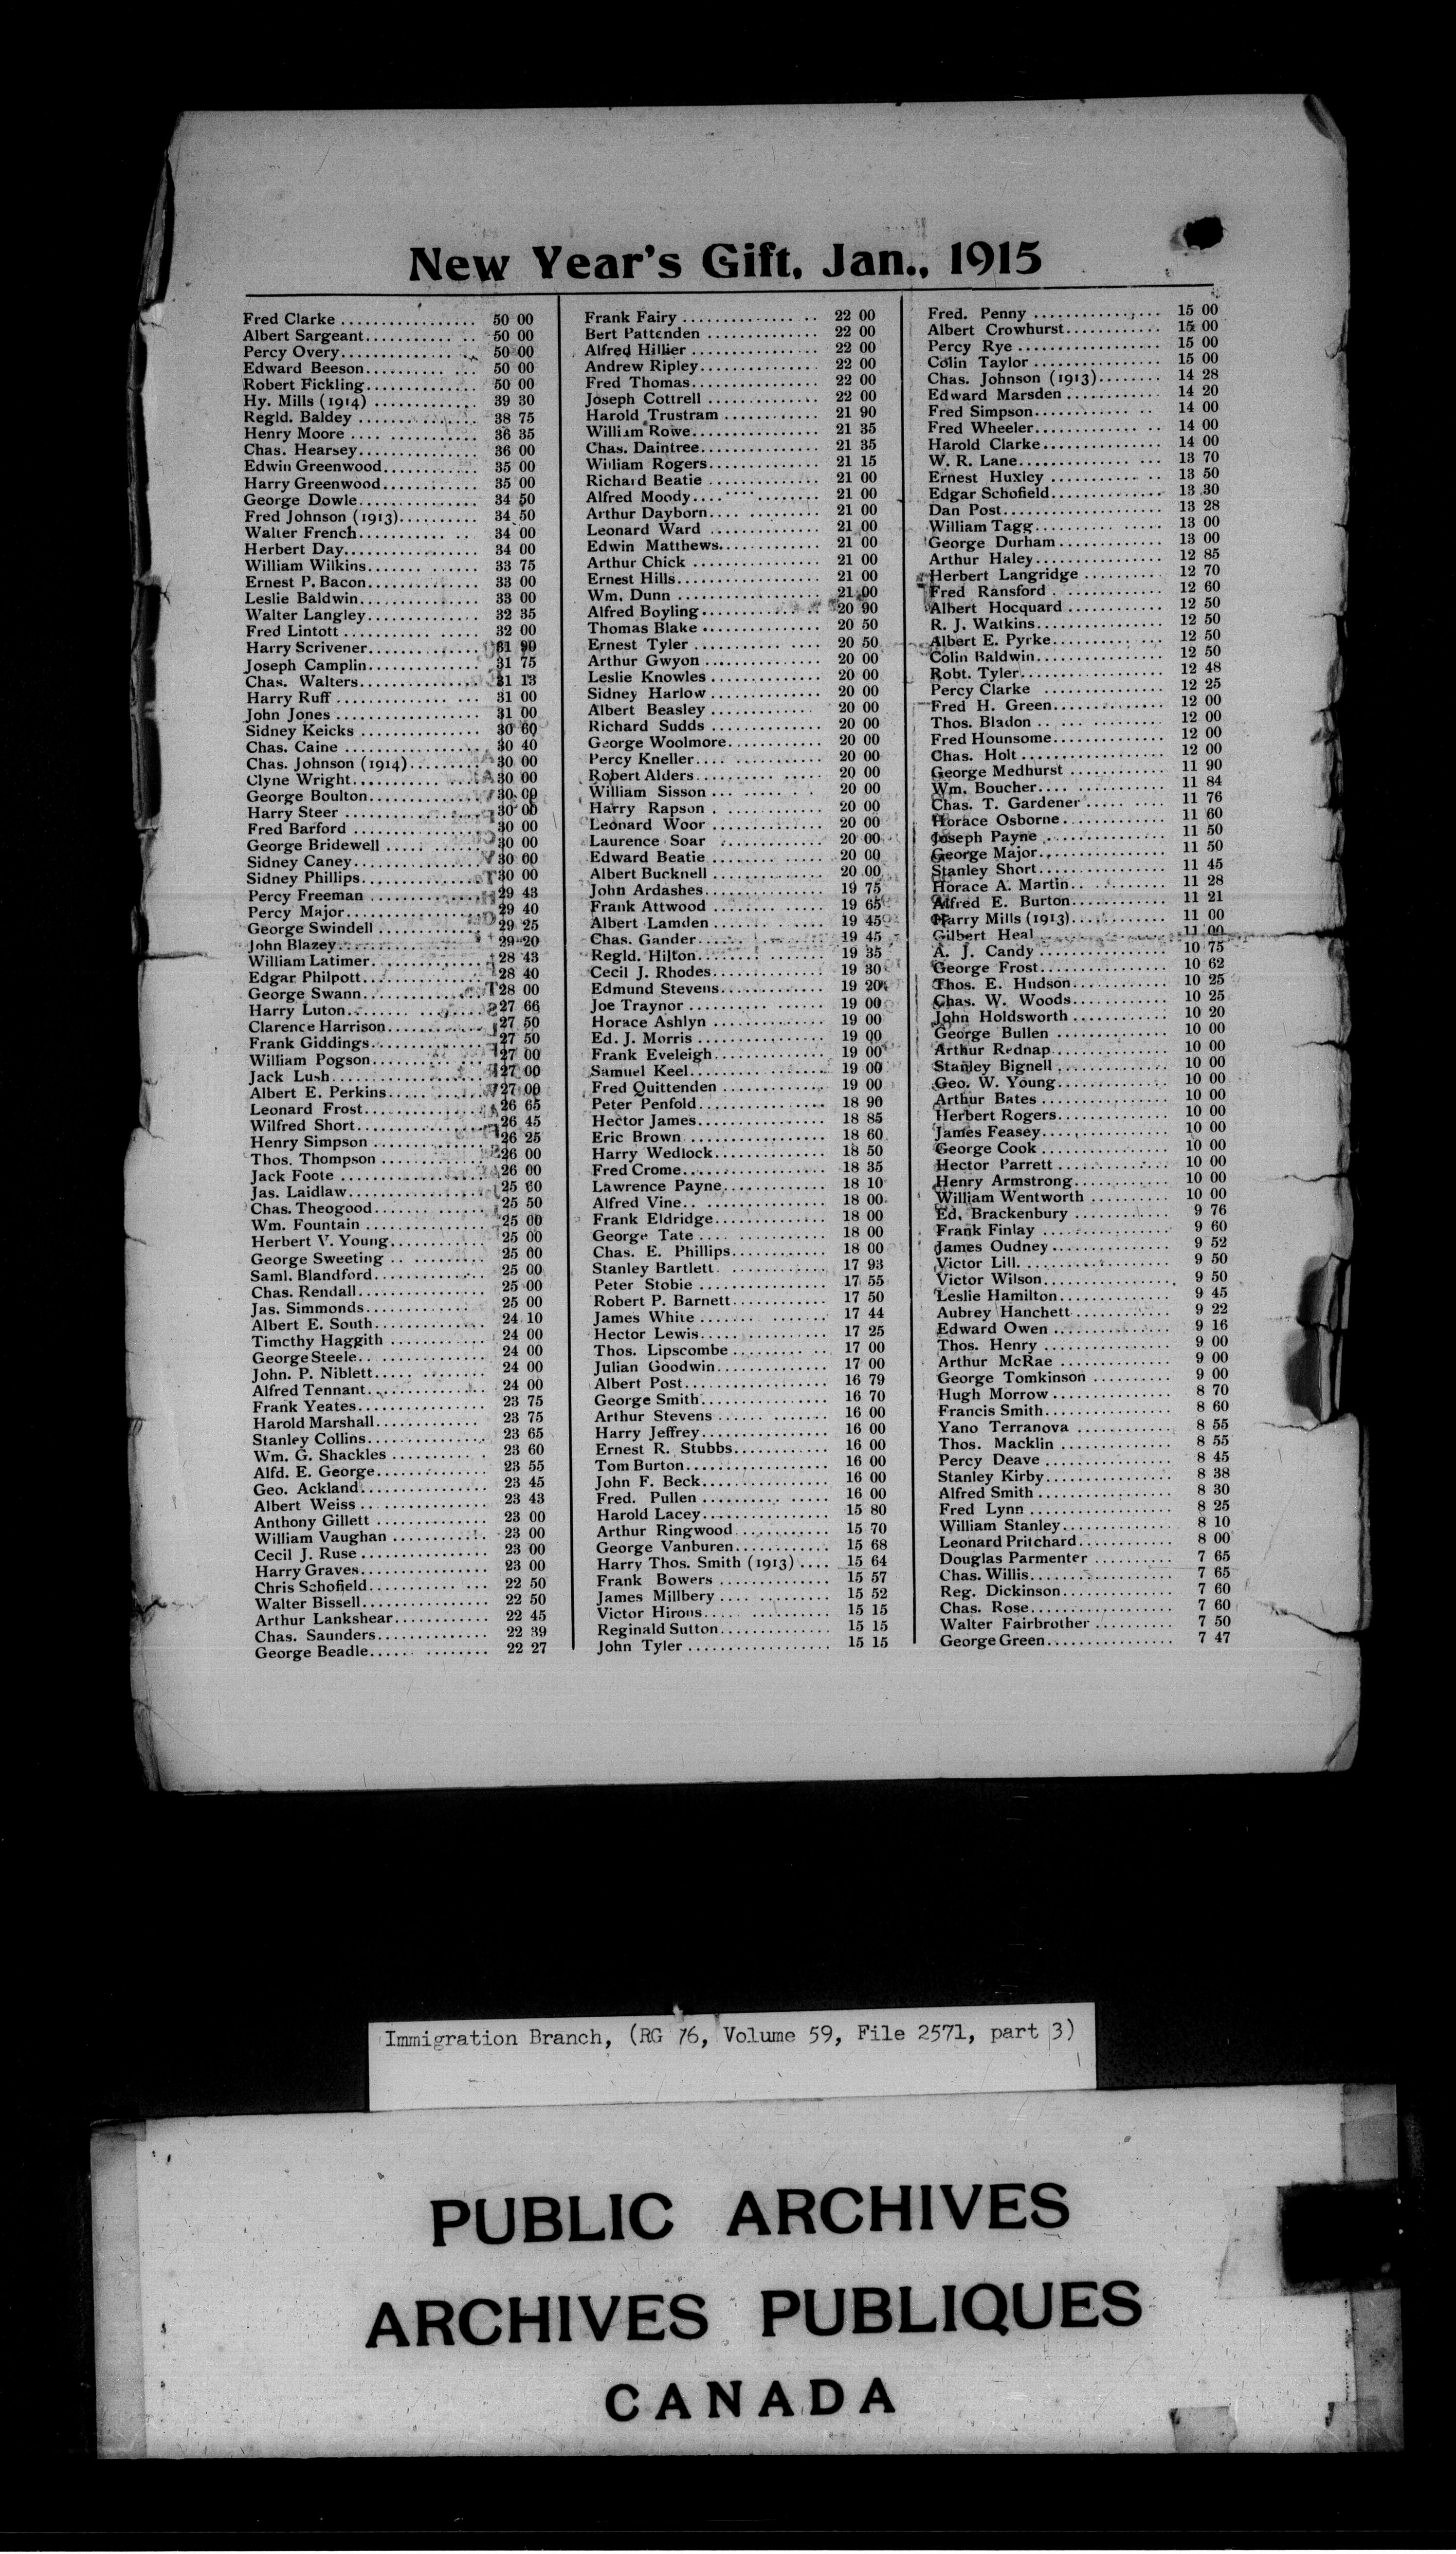 New Year's Gift, Jan., 1915
Fred Clarke ................. 50 00
Albert Sargeant.............. 50 00
Percy Overy.............. 50 00
Edward Beeson.......... 50 00
Robert Fickling.............. 50 00
Hy. Mills (1914) ............. 39 30
Regld. Baldey ............... 38 75
Henry Moore .... ........... 36 35
Chas. Hearsey............... 36 00
Edwin Greenwood............ 35 00
Harry Greenwood............ 35 00
George Dowle............... 34 50
Fred Johnson (1913).......... 34 50
Walter French........... .. 34 00
Herbert Day................. 34 00
William Wilkins....... ...... 33 75
Ernest P. Bacon.............. 33 00
Leslie Baldwin............... 33 00
Walter Langley.............. 32 35
Fred Lintott ........... ..... 32 00
Harry Scrivener.............. 31 90
Joseph Camplin.............. 31 75
Chas. Walters............... 31 13
Harry Ruff .............. ... 31 00
John Jones .................. 31 00
Sidney Keicks ............... 30 60
Chas. Caine ................. 30 40
Chas. Johnson (1914)......... 30 00
Clyne Wright........... .... 30 00
George Boulton.............. 30 00
Harry Steer ................. 30 00
Fred Barford ................ 30 00
George Bridewell ............ 30 00
Sidney Caney................ 30 00
Sidney Phillips............... 30 00
Percy Freeman .............. 29 43
Percy Major................. 29 40
George Swindell ............. 29 25
John Blazey................. 29 20
William Latimer.............. 28 43
Edgar Philpott............... 28 40
George Swann............... 28 00
Harry Luton................. 27 66
Clarence Harrison............ 27 50
Frank Giddings.............. 27 50
William Pogson.............. 27 00
Jack Lush................... 27 00
Albert E. Perkins............. 27 00
Leonard Frost............... 26 65
Wilfred Short................ 26 45
Henry Simpson .............. 26 25
Thos. Thompson ............. 26 00
Jack Foote .................. 26 00
Jas. Laidlaw................. 25 60
Chas. Theogood.............. 25 50
Wm. Fountain ............... 25 00
Herbert V. Young............ 25 00
George Sweeting .. ......... 25 00
Saml. Blandford.............. 25 00
Chas. Rendall................ 25 00
Jas. Simmonds............. 25 00
Albert E. South.............. 24 10
Timothy Haggith ............ 24 00
George Steele................ 24 00
John. P. Niblett..... ........ 24 00
Alfred Tennant............... 24 00
Frank Yeates................ 23 75
Harold Marshall............. 23 75
Stanley Collins............... 23 65
Wm. G. Shackles .......... . 23 60
Alfd. E. George.............. 23 55
Geo. Ackland................ 23 45
Albert Weiss ................ 23 43
Anthony Gillett .............. 23 00
William Vaughan ............ 23 00
Cecil J. Ruse ................ 23 00
Harry Graves................ 23 00
Chris Schofield........... ... 22 50
Walter Bissell................ 22 50
Arthur Lankshear............ 22 45
Chas. Saunders.............. 22 39
George Beadle...... ........ 22 27
Frank Fairy .............. .. 22 00
Bert Pattenden .............. 22 00
Alfred Hillier ................ 22 00
Andrew Ripley............... 22 00
Fred Thomas................ 22 00
Joseph Cottrell .............. 22 00
Harold Trustram ............ 21 90
William Rowe................ 21 35
Chas. Daintree............... 21 35
William Rogers.............. 21 15
Richard Beatie .............. 21 00
Alfred Moody................ 21 00
Arthur Dayborn.............. 21 00
Leonard Ward .............. 21 00
Edwin Matthews............. 21 00
Arthur Chick ................ 21 00
Ernest Hills.................. 21 00
Wm. Dunn .................. 21 00
Alfred Boyling............... 20 90
Thomas Blake ............... 20 50
Ernest Tyler ........... .... 20 50
Arthur Gwyon ............... 20 00
Leslie Knowles .............. 20 00
Sidney Harlow .............. 20 00
Albert Beasley ............. 20 00
Richard Sudds .............. 20 00
George Woolmore............ 20 00
Percy Kneller.... ........... 20 00
Robert Alders........... ..... 20 00
William Sisson ... ...... . . 20 00
Harry Rapson . ............ 20 00
Leonard Woor .............. 20 00
Laurence Soar ............. 20 00
Edward Beatie .............. 20 00
Albert Bucknell .............. 20 00
John Ardashes............... 19 75
Frank Attwood .............. 19 65
Albert Lamden .............. 19 45
Chas. Gander................ 19 45
Regld. Hilton................ 19 35
Cecil J. Rhodes.............. 19 30
Edmund Stevens............. 19 20
Joe Traynor ................. 19 00
Horace Ashlyn .............. 19 00
Ed. J. Morris ................ 19 00
Frank Eveleigh.............. 19 00
Samuel Keel................. 19 00
Fred Quittenden ............. 19 00
Peter Penfold................ 18 90
Hector James................ 18 85
Eric Brown.................. 18 60
Harry Wedlock.............. 18 50
Fred Crome.................. 18 35
Lawrence Payne............. 18 10
Alfred Vine.. ............... 18 00
Frank Eldridge.............. 18 00
George Tate ................ 18 00
Chas. E. Phillips............ 18 00
Stanley Bartlett.............. 17 93
Peter Stobie ................ 17 55
Robert P. Barnett............ 17 50
James White ....... ....... 17 44
Hector Lewis................ 17 25
Thos. Lipscombe .......... .. 17 00
Julian Goodwin.............. 17 00
Albert Post.................. 16 79
George Smith................ 16 70
Arthur Stevens ...... ....... 16 00
Harry Jeffrey................ 16 00
Ernest R. Stubbs............ 16 00
Tom Burton.................. 16 00
John F. Beck................ 16 00
Fred. Pullen .......... ..... 16 00
Harold Lacey................ 15 80
Arthur Ringwood............ 15 70
George Vanburen............ 15 68
Harry Thos. Smith (1913) .... 15 64
Frank Bowers .............. 15 57
James Millbery .... ......... 15 52
Victor Hirons.... .......... 15 15
Reginald Sutton.............. 15 15
John Tyler .................. 15 15
Fred. Penny ................ 15 00
Albert Crowhurst............ 15 00
Percy Rye .................. 15 00
Colin Taylor ................ 15 00
Chas. Johnson (1913)........ 14 28
Edward Marsden ............ 14 20
Fred Simpson............ .. 14 00
Fred Wheeler............. .. 14 00
Harold Clarke............... 14 00
W. R. Lane.............. ... 13 70
Ernest Huxley .......... .. 13 50
Edgar Schofield.............. 13 30
Dan Post.................... 13 28
William Tagg................ 13 00
George Durham............. 13 00
Arthur Haley................ 12 85
Herbert Langridge .......... 12 70
Fred Ransford . ............ 12 60
Albert Hocquard ............ 12 50
R. J. Watkins................ 12 50
Albert E. Pyrke.............. 12 50
Colin Baldwin................ 12 50
Robt. Tyler.................. 12 48
Percy Clarke ............... 12 25
Fred H. Green.............. 12 00
Thos. Bladon ............... 12 00
Fred Hounsome.............. 12 00
Chas. Holt.................. 12 00
George Medhurst ............ 11 90
Wm. Boucher.... ........... 11 84
Chas. T. Gardener .......... 11 76
Horace Osborne............. 11 60
Joseph Payne ............... 11 50
George Major................ 11 50
Stanley Short................ 11 45
Horace A. Martin............ 11 28
Alfred E. Burton............. 11 21
Harry Mills (1913)............ 11 00
Gilbert Heal ................ 11 00
A. J. Candy ................ 10 75
George Frost................ 10 62
Thos. E. Hudson............ 10 25
Chas. W. Woods............ 10 25
John Holdsworth ............ 10 20
George Bullen .............. 10 00
Arthur Rednap.............. 10 00
Stanley Bignell .............. 10 00
Geo. W. Young.............. 10 00
Arthur Bates ................ 10 00
Herbert Rogers.............. 10 00
James Feasey................ 10 00
George Cook ................ 10 00
Hector Parrett .............. 10 00
Henry Armstrong............ 10 00
William Wentworth .......... 10 00
Ed. Brackenbury ............ 9 76
Frank Finlay ................ 9 60
James Oudney............... 9 52
Victor Lill................... 9 50
Victor Wilson................ 9 50
Leslie Hamilton.............. 9 45
Aubrey Hanchett............ 9 22
Edward Owen .............. 9 16
Thos. Henry ................ 9 00
Arthur McRae .............. 9 00
George Tomkinson .......... 9 00
Hugh Morrow............... 8 70
Francis Smith................ 8 60
Yano Terranova ............ 8 55
Thos. Macklin .............. 8 55
Percy Deave ................ 8 45
Stanley Kirby................ 8 38
Alfred Smith ................ 8 30
Fred Lynn .................. 8 25
William Stanley.............. 8 10
Leonard Pritchard............ 8 00
Douglas Parmenter .......... 7 65
Chas. Willis.................. 7 65
Reg. Dickinson.............. 7 60
Chas. Rose.................. 7 60
Walter Fairbrother .......... 7 50
George Green................ 7 47
Immigration Branch, (RG 76, Volume 59, File 2571, part 3)
PUBLIC ARCHIVES
ARCHIVES PUBLIQUES
CANADA